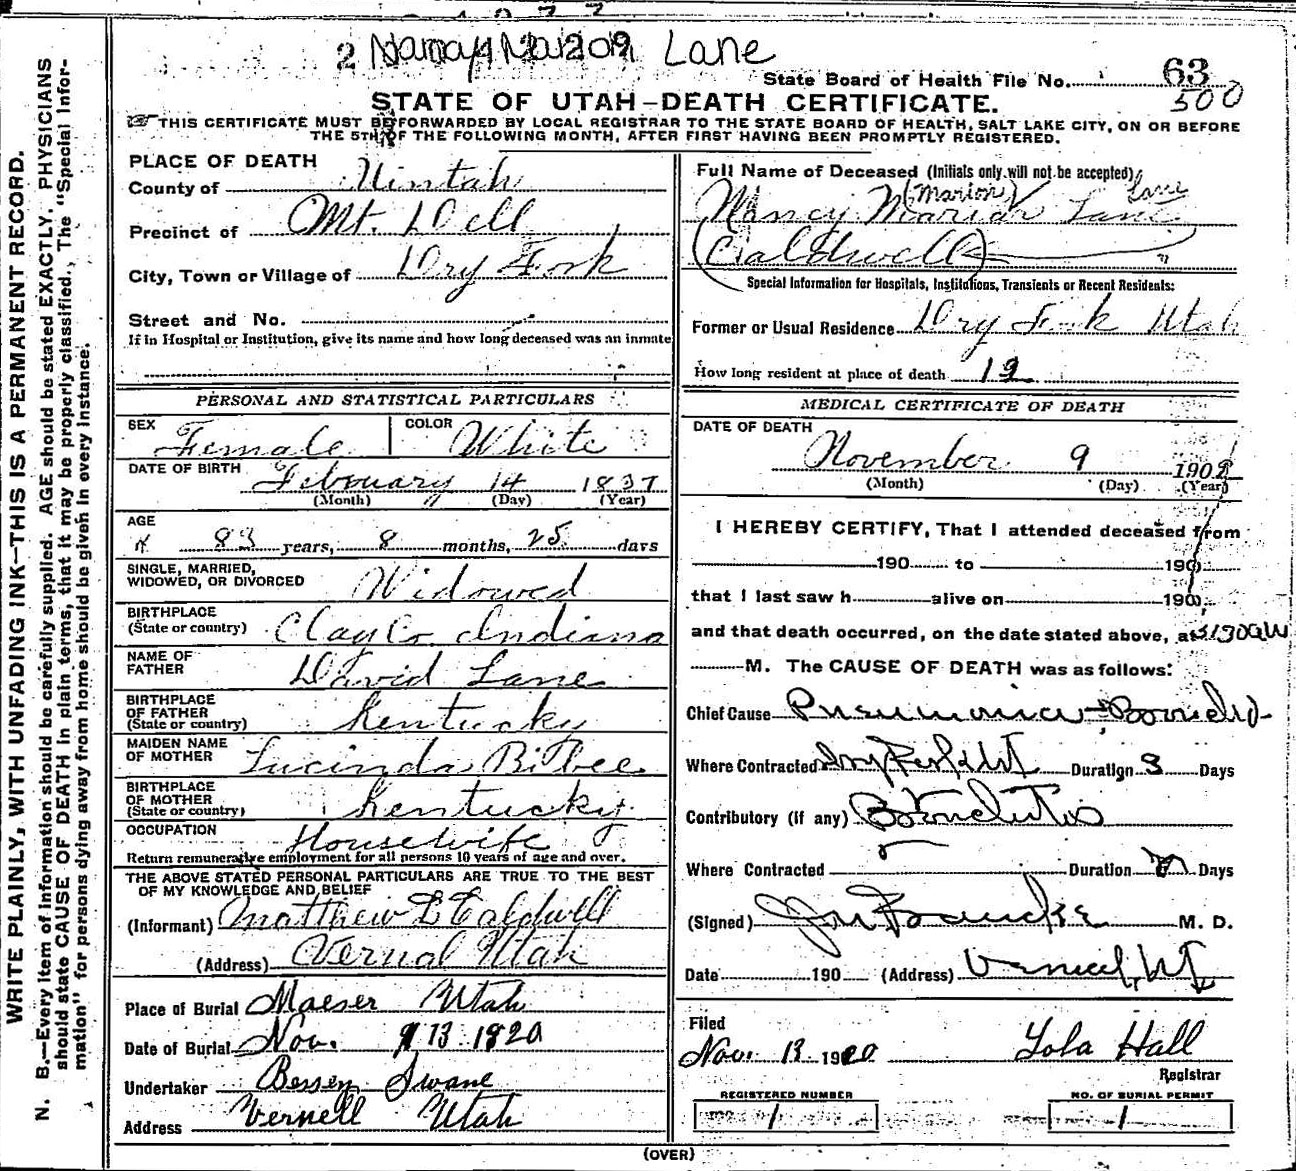 2 Nancy Marion Lane
State Board of Health File No. 63
500
STATE OF UTAH—DEATH CERTIFICATE.
THIS CERTIFICATE MUST BE FORWARDED BY LOCAL REGISTRAR TO THE STATE BOARD OF HEALTH, SALT LAKE CITY, ON OR BEFORE
THE 5TH OF THE FOLLOWING MONTH, AFTER FIRST HAVING BEEN PROMPTLY REGISTERED.
WRITE PLAINLY, WITH UNFADING INK—THIS IS A PERMANENT RECORD.
N. B.—Every item of information should be carefully supplied. AGE should be stated EXACTLY. PHYSICIANS
should state CAUSE OF DEATH in plain terms, that it may be properly classified. The "Special Infor-
mation" for persons dying away from home should be given in every instance.
PLACE OF DEATH
County of Uintah
Precinct of Mt. Dell
City, Town or Village of Dry Fork
Street and No.
If in Hospital or Institution, give its name and how long deceased was an inmate
PERSONAL AND STATISTICAL PARTICULARS
SEX Female COLOR White
DATE OF BIRTH February 14 1837
(Month) (Day) (Year)
AGE
83 years, 8 months, 25 days
SINGLE, MARRIED,
WIDOWED, OR DIVORCED Widowed
BIRTHPLACE
(State or country) Clay Co Indiana
NAME OF
FATHER David Lane
BIRTHPLACE
OF FATHER
(State or country) Kentucky
MAIDEN NAME
OF MOTHER Lucinda Bilbee
BIRTHPLACE
OF MOTHER
(State or country) Kentucky
OCCUPATION Housewife
Return remunerative employment for all persons 10 years of age and over.
THE ABOVE STATED PERSONAL PARTICULARS ARE TRUE TO THE BEST
OF MY KNOWLEDGE AND BELIEF
(Informant) Matthew L Caldwell
(Address) Vernal Utah
Place of Burial Maeser Utah
Date of Burial Nov. 13 1920
Undertaker Bessey Swane
Address Vernell Utah
Full Name of Deceased (Initials only will not be accepted)
(Marion) Lane
Nancy Mariar Lane
(Caldwell)
Special Information for Hospitals, Institutions, Transients or Recent Residents:
Former or Usual Residence Dry Fork Utah
How long resident at place of death 19
MEDICAL CERTIFICATE OF DEATH
DATE OF DEATH
November 9 190
(Month) (Day) (Year)
I HEREBY CERTIFY, That I attended deceased from
190 to 190
that I last saw h alive on 190
and that death occurred, on the date stated above, at
M. The CAUSE OF DEATH was as follows:
Chief Cause Pneumonia
Where Contracted Duration 3 Days
Contributory (if any) Bronchitis
Where Contracted Duration Days
(Signed) M. D.
Date 190 (Address) Vernal, Ut
Filed
Nov. 13 1920 Lola Hall
Registrar
REGISTERED NUMBER
1
NO. OF BURIAL PERMIT
1
(OVER)